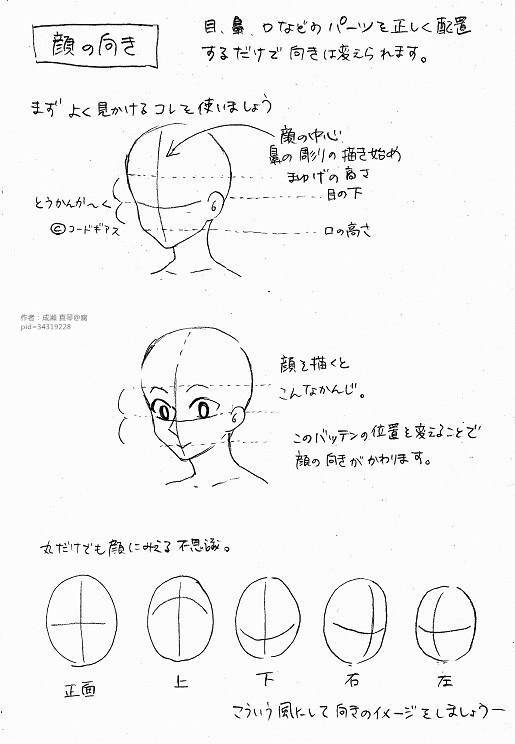 顔の向き
目、鼻、口などのパーツを正しく配置
するだけで向きは変えられます。
まずよく見かけるコレを使いましょう
顔の中心
鼻の彫りの描き始め
まゆげの高さ
目の下
とうかんか〜く
©コードギアス
口の高さ
作者：成瀬 真琴@腐
pid=34319228
顔を描くと
こんなかんじ。
このバッテンの位置を変えることで
顔の向きがかわります。
丸だけでも顔にみえる不思議。
正面
上
下
右
左
こういう風にして向きのイメージをしましょうー